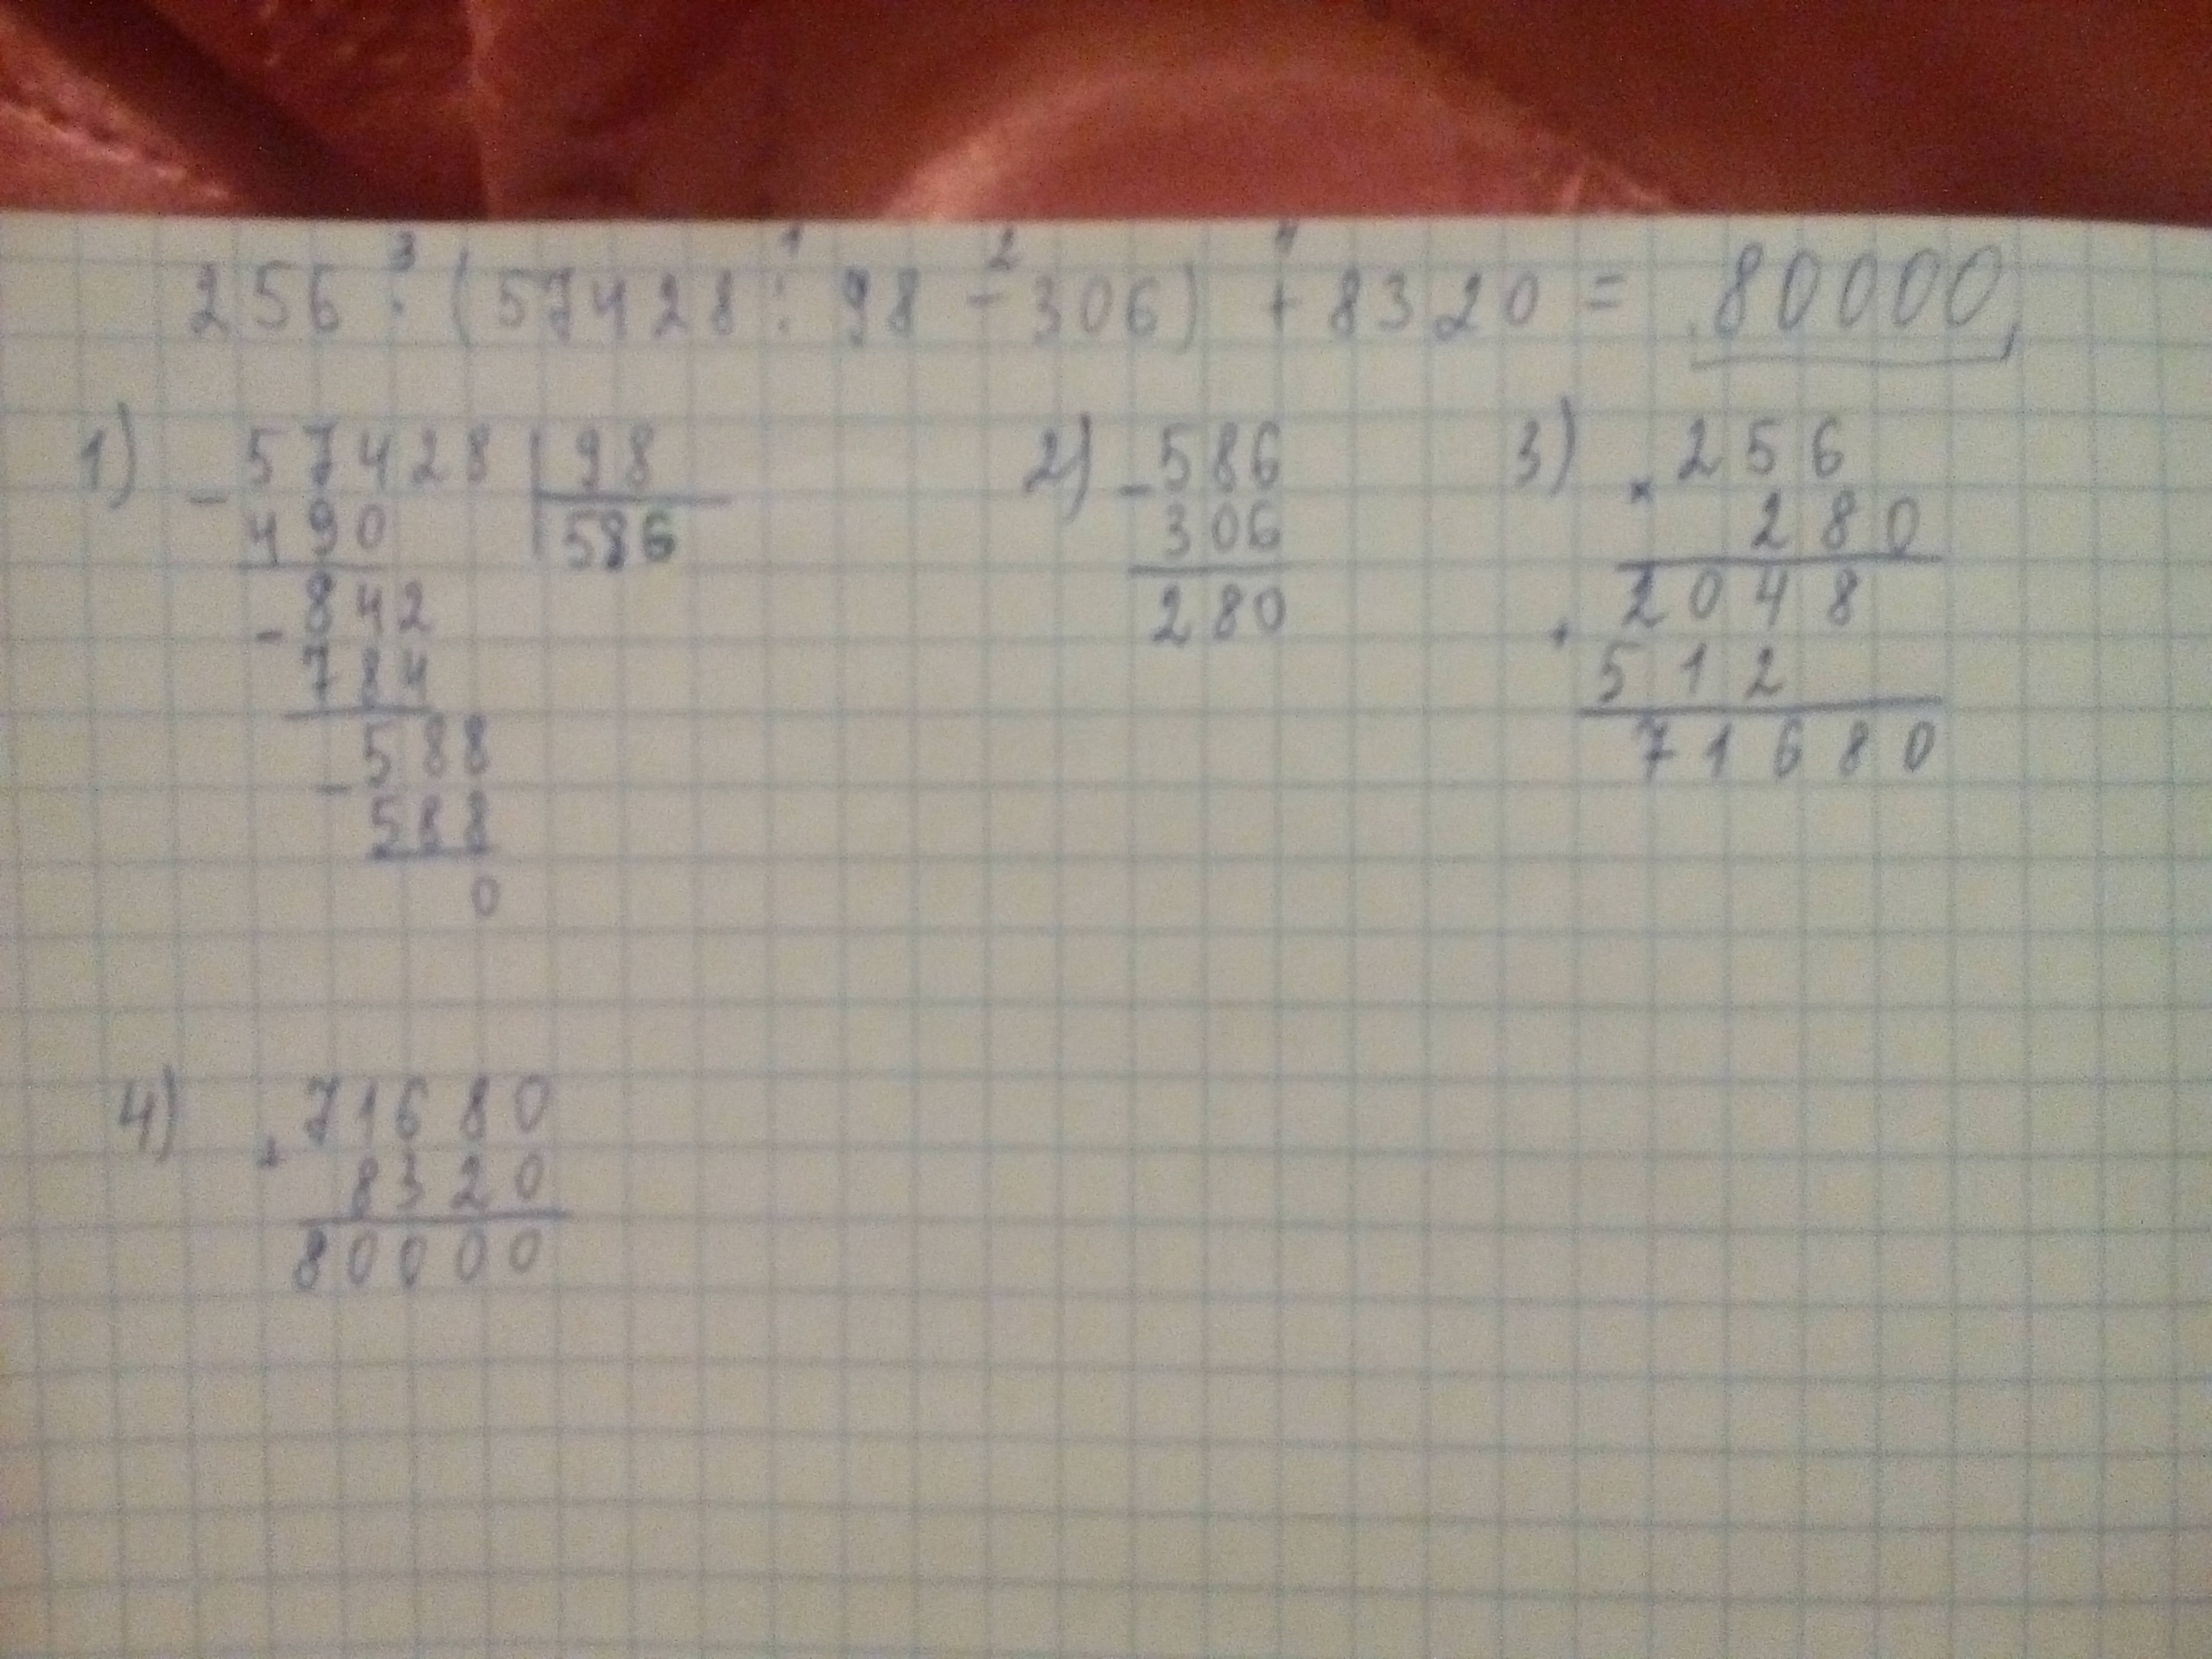 3 1 2 4
256 · (57428 : 98 - 306) + 8320 = 80000
1) - 57428 | 98
490 | 586
- 842
784
- 588
588
0
2) - 586
306
280
3) × 256
280
+ 2048
512
71680
4) + 71680
8320
80000